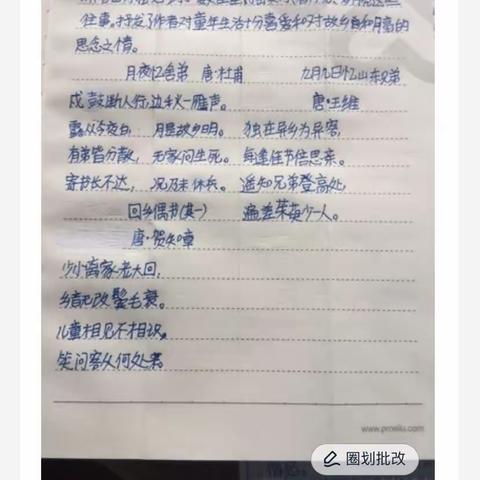 往事。抒发了作者对童年生活十分喜爱和对故乡和月亮的
思念之情。
月夜忆舍弟 唐·杜甫 九月九日忆山东兄弟
戍鼓断人行,边秋一雁声。 唐·王维
露从今夜白, 月是故乡明。 独在异乡为异客,
有弟皆分散, 无家问生死。 每逢佳节倍思亲。
寄书长不达, 况乃未休兵。 遥知兄弟登高处,
回乡偶书(其一) 遍差茱萸少一人。
唐·贺知章
少小离家老大回,
乡音无改鬓毛衰。
儿童相见不相识,
笑问客从何处来
圈划批改